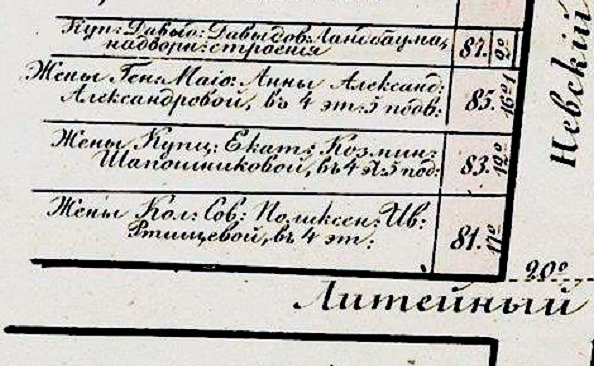 Куп: Давыд: Давыдов: Лангбаума,
надворн: строения
87.
9°
Жены Ген: Маіо: Анны Александ:
Александровой, въ 4 эт: 5 подв:
85.
Жены Купц: Екат: Козмин:
Шапошниковой, въ 4 э: 5 под:
83.
12°
Жены Кол: Сов: Поликсен: Ив:
Ртищевой, въ 4 эт:
81.
17°
20°
Литейный
Невскій